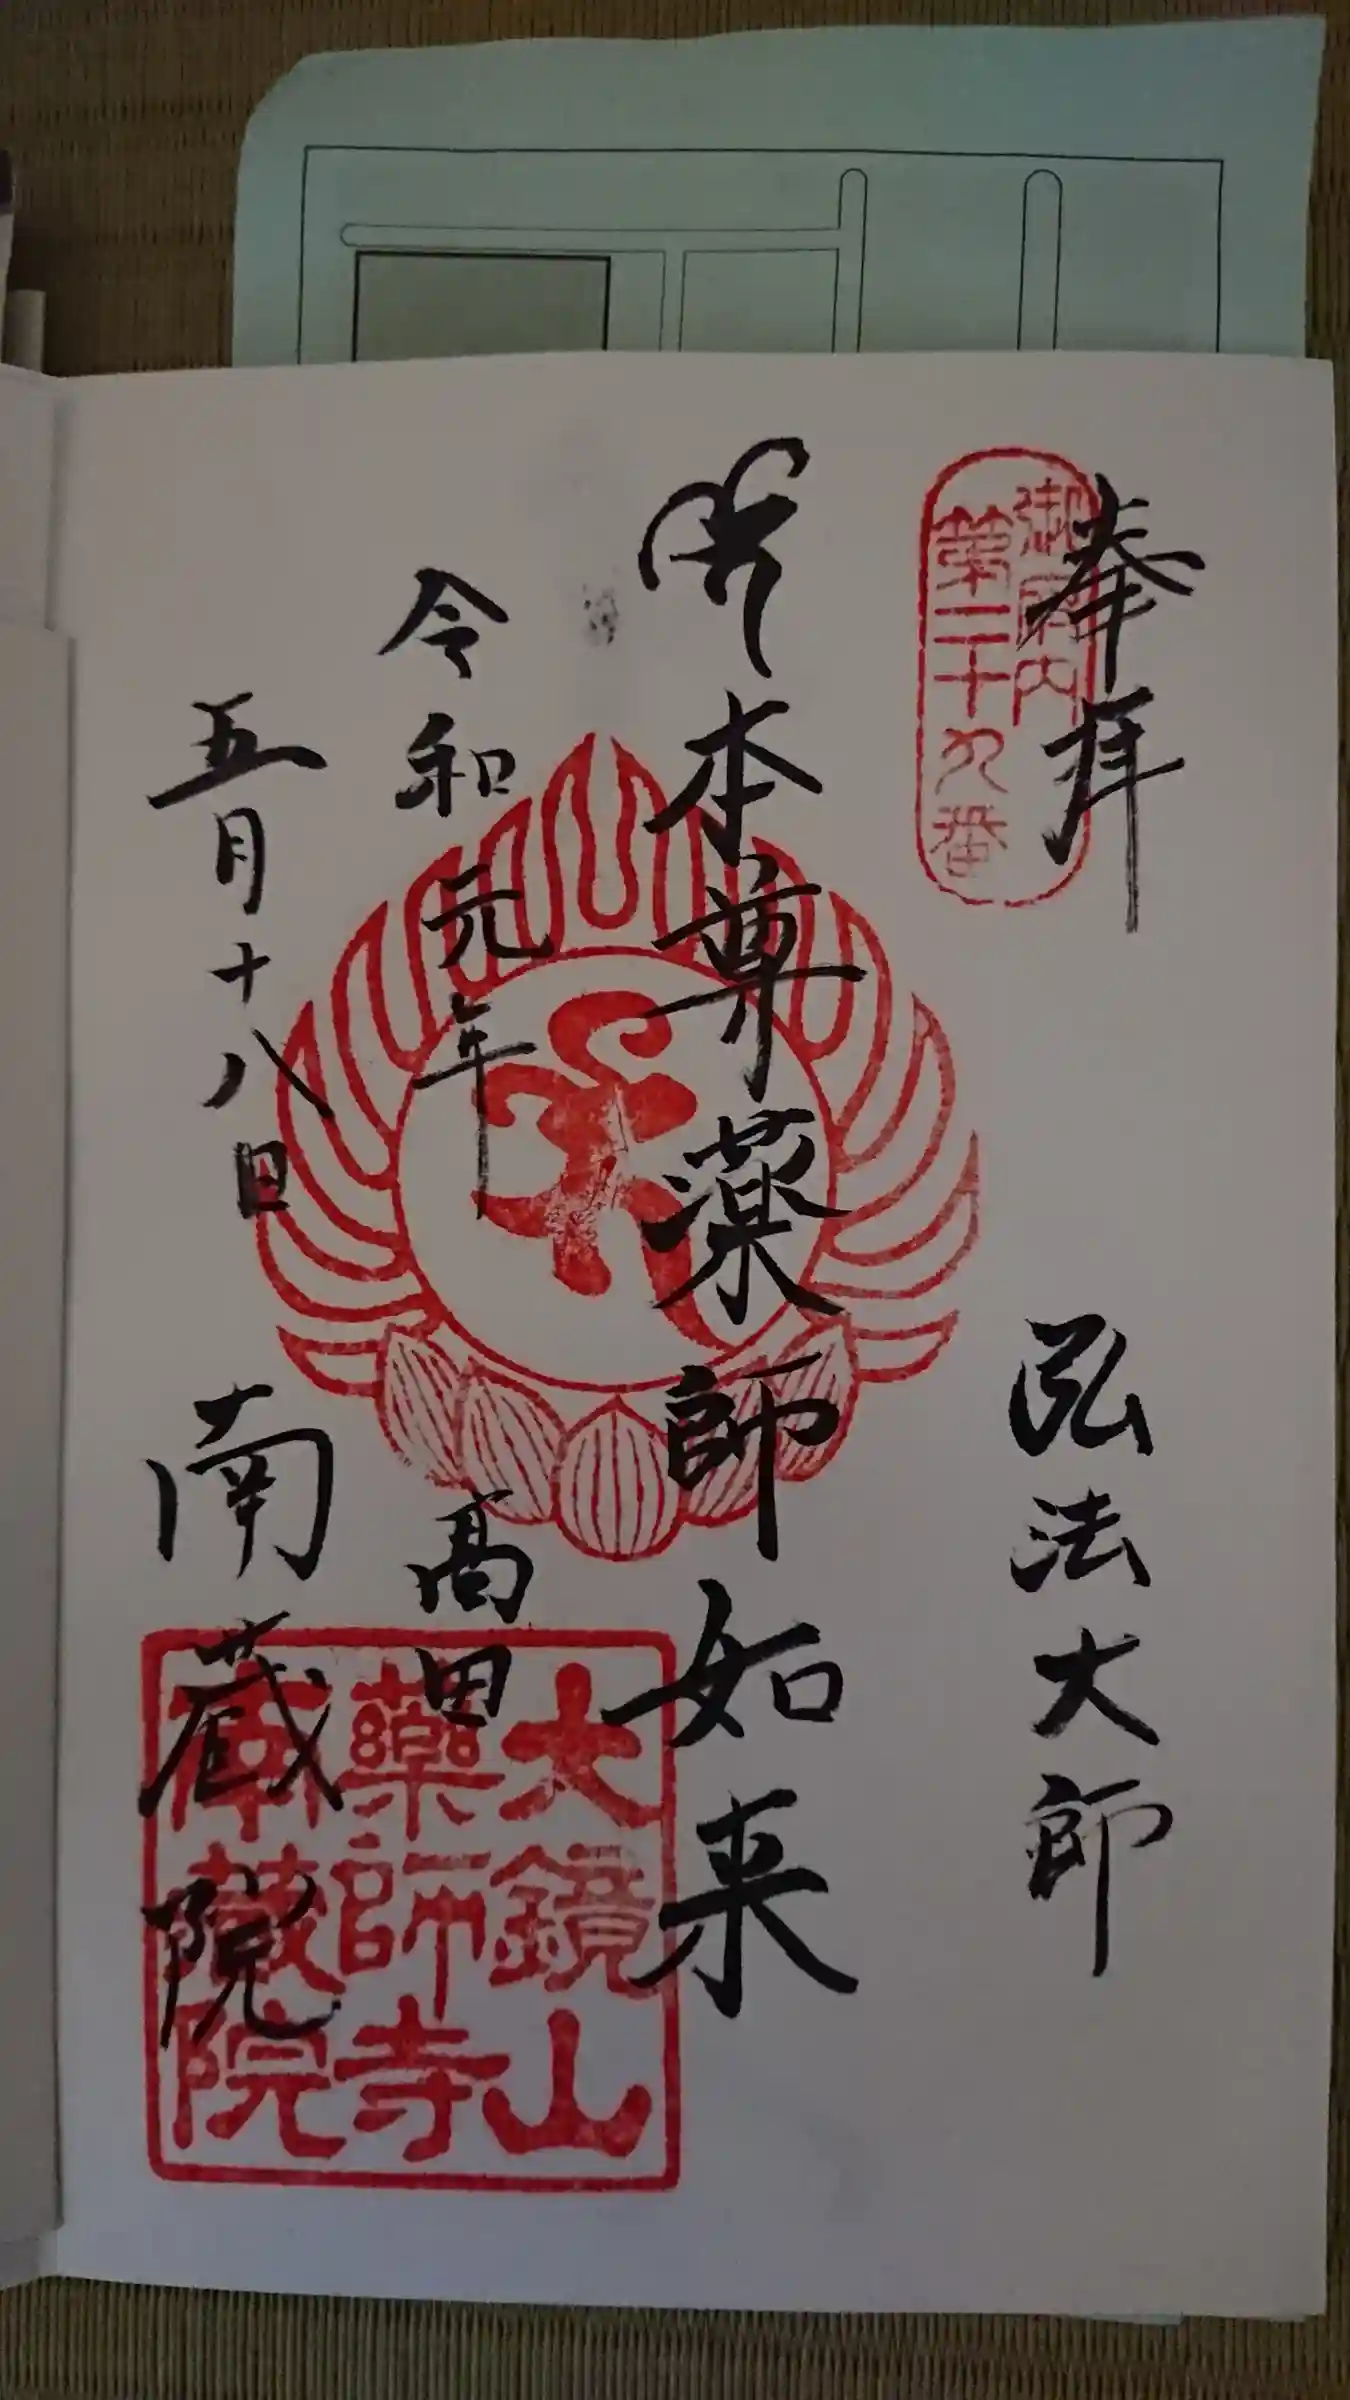 奉拝
弘法大師
御府内
第二十九番
本尊薬師如来
令和元年
髙田
五月十八日
南蔵院
大鏡山
藥師寺
南蔵院